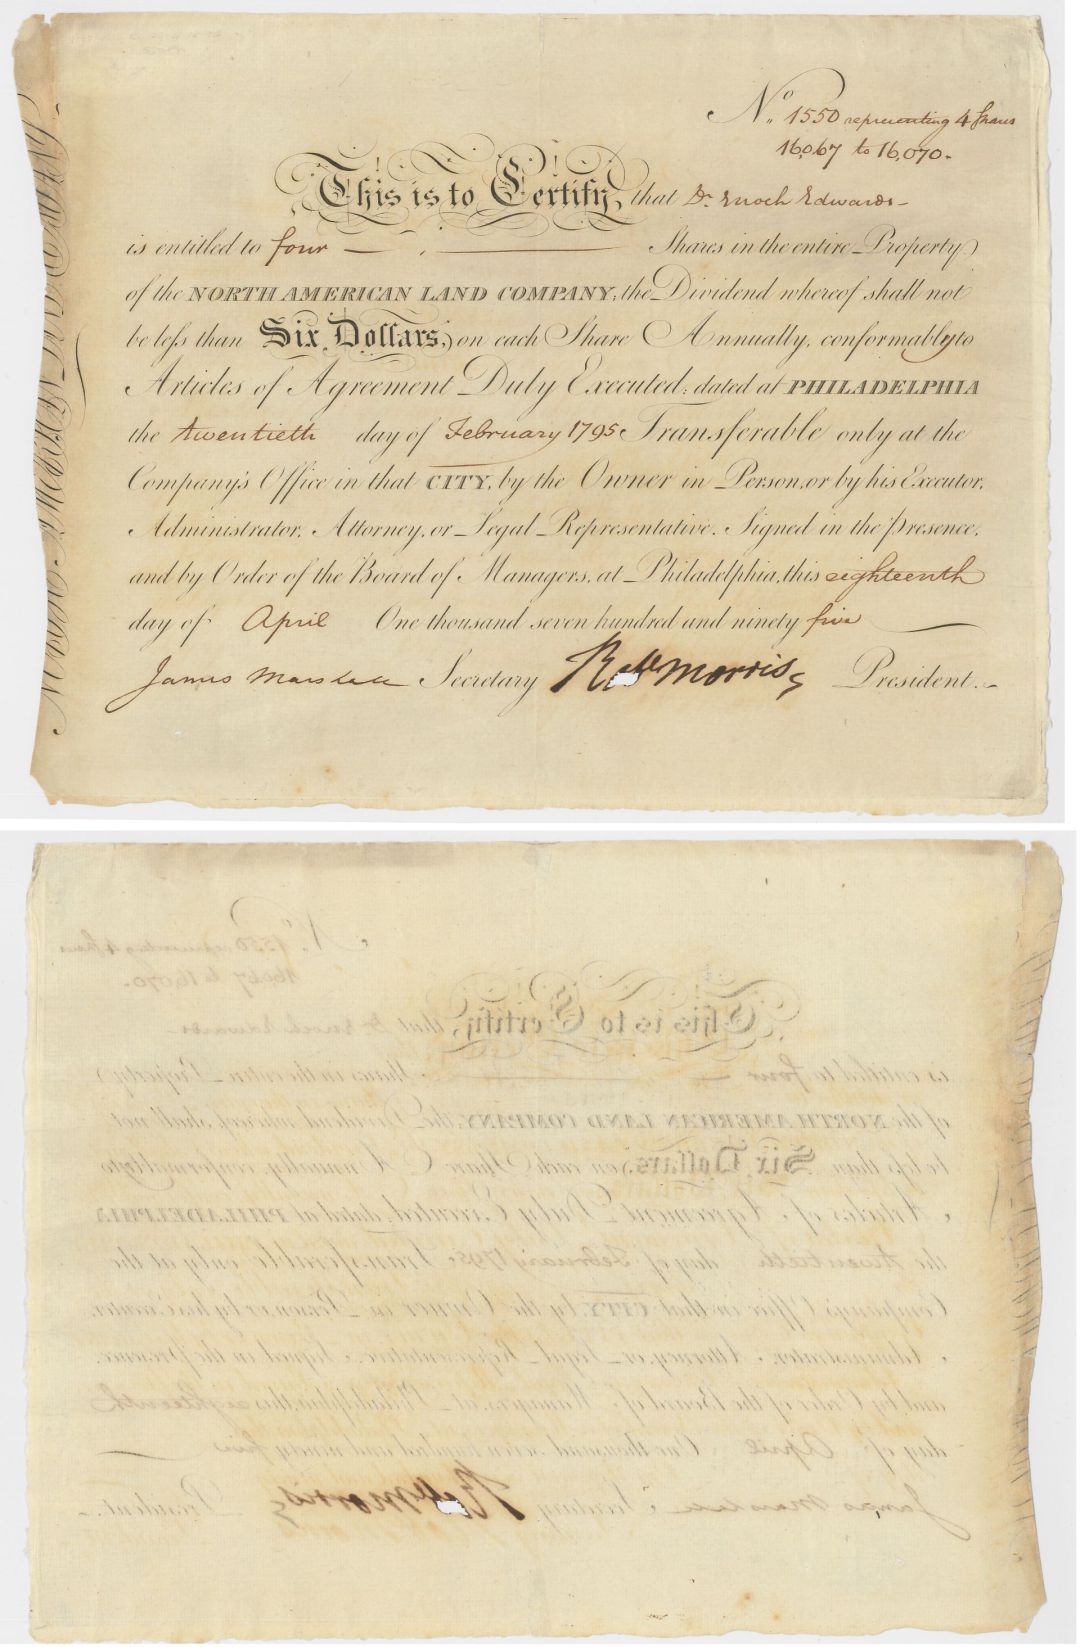 No. 1550 representing 4 Shares
16,067 to 16,070.
This is to Certify, that Dr. Enoch Edwards
is entitled to four Shares in the entire Property
of the NORTH AMERICAN LAND COMPANY, the Dividend whereof shall not
be less than Six Dollars, on each Share Annually, conformably to
Articles of Agreement Duly Executed; dated at PHILADELPHIA
the twentieth day of February 1795 Transferable only at the
Company's Office in that CITY, by the Owner in Person, or by his Executor,
Administrator, Attorney, or Legal Representative. Signed in the presence,
and by Order of the Board of Managers, at Philadelphia, this eighteenth
day of April One thousand seven hundred and ninety five
James Marshall Secretary Robt Morris President.